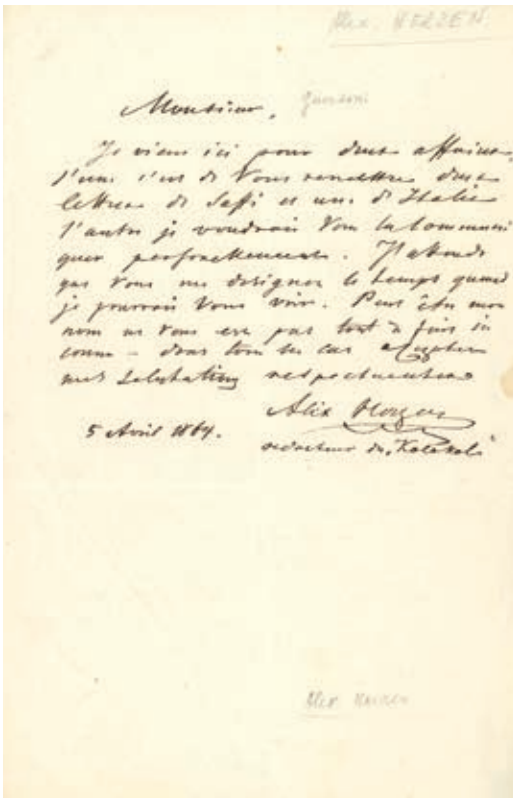 Alex. HERZEN
Monsieur,
Je viens ici pour deux affaires
l'une c'est de Vous remettre deux
lettres de Saffi et une d'Italie
l'autre je voudrais Vous la communi
quer personellement. J'attends
que Vous me designez le temps quand
je pourrais Vous voir. Peut être mon
nom ne Vous est pas tout à fait in
connu – dans tous les cas acceptez
mes salutations respectueuses
Alex Herzen
5 Avril 1864.
redacteur du "Kolokol"
Alex. Herzen